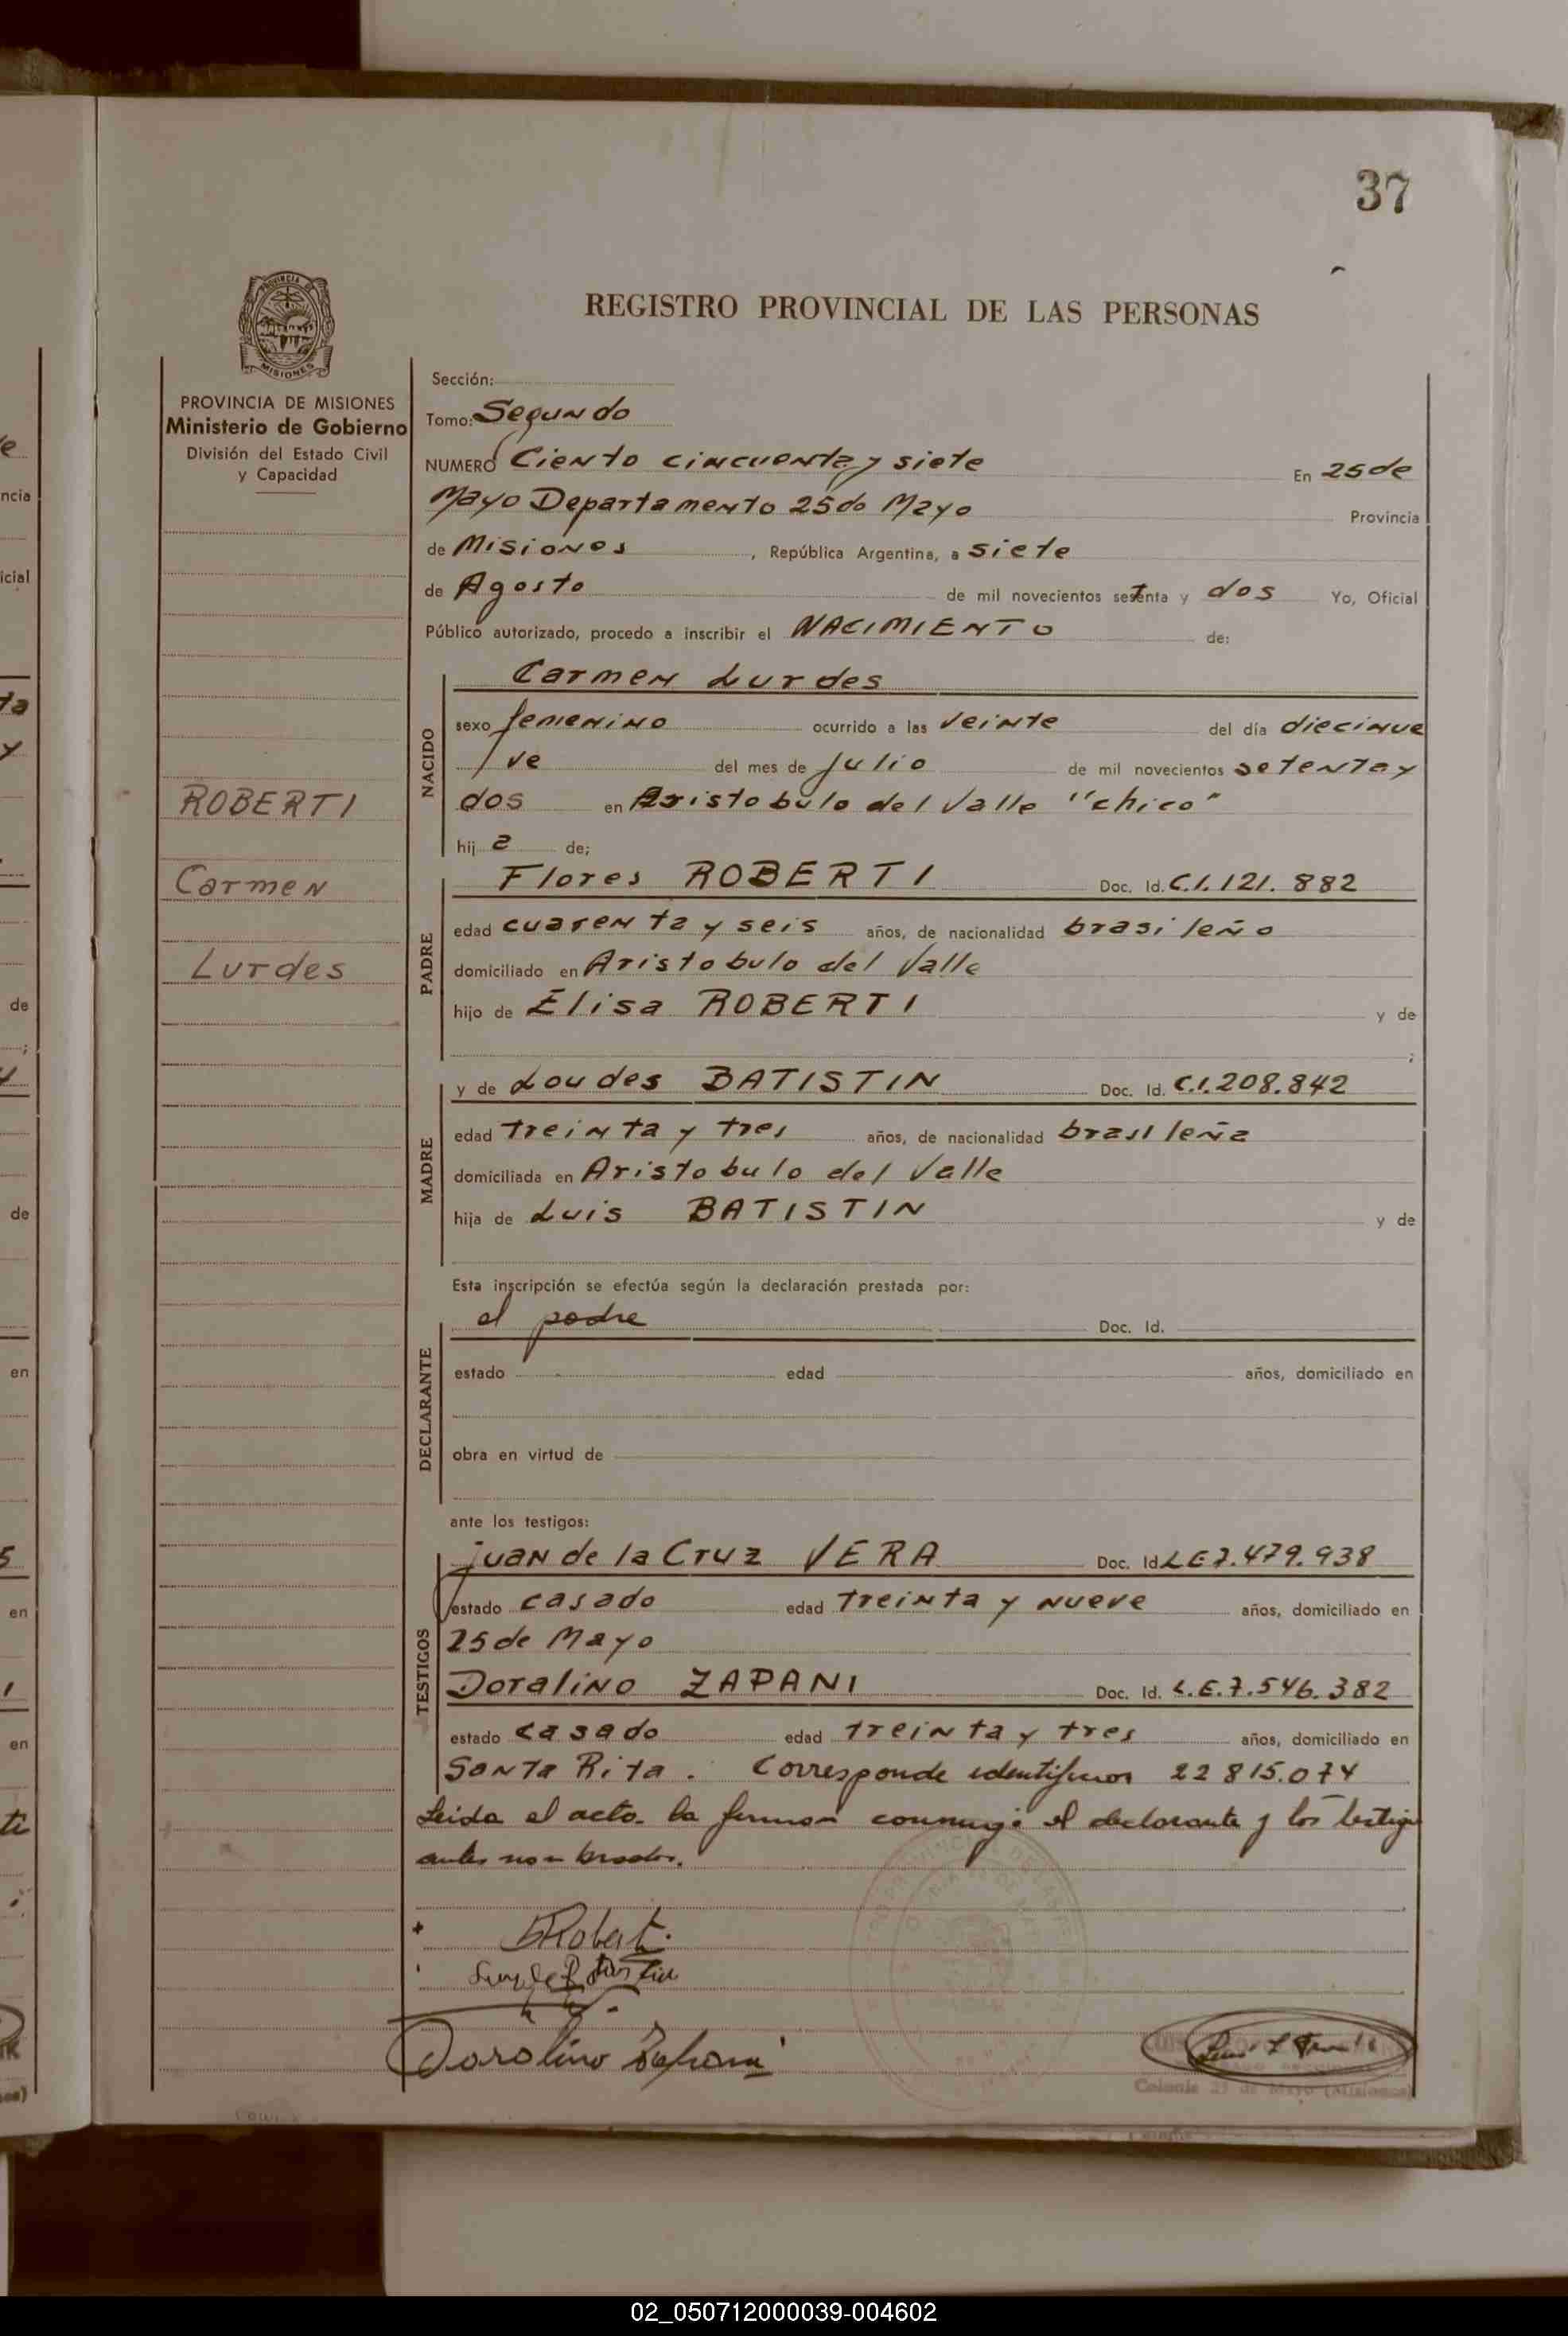 37
REGISTRO PROVINCIAL DE LAS PERSONAS
PROVINCIA DE MISIONES
Ministerio de Gobierno
División del Estado Civil
y Capacidad
ROBERTI
Carmen
Lurdes
Sección:
Tomo: Segundo
NUMERO Ciento cincuenta y siete En 25 de
Mayo Departamento 25 de Mayo Provincia
de Misiones, República Argentina, a siete
de Agosto de mil novecientos setenta y dos Yo, Oficial
Público autorizado, procedo a inscribir el NACIMIENTO de:
NACIDO
Carmen Lurdes
sexo femenino ocurrido a las veinte del día diecinue
/ve del mes de julio de mil novecientos setenta y
dos en Aristobulo del Valle "chico"
hij a de;
PADRE
Flores ROBERTI Doc. Id. C.I. 121. 882
edad cuarenta y seis años, de nacionalidad brasileño
domiciliado en Aristobulo del Valle
hijo de Elisa ROBERTI y de
;
MADRE
y de Loudes BATISTIN Doc. Id. C.I. 208.842
edad treinta y tres años, de nacionalidad brasileña
domiciliada en Aristobulo del Valle
hija de Luis BATISTIN y de
Esta inscripción se efectúa según la declaración prestada por:
DECLARANTE
el padre Doc. Id.
estado edad años, domiciliado en
obra en virtud de
ante los testigos:
TESTIGOS
Juan de la Cruz VERA Doc. Id. LE 7.479.938
estado casado edad treinta y nueve años, domiciliado en
25 de Mayo
Doralino ZAPANI Doc. Id. L.E. 7.546.382
estado casado edad treinta y tres años, domiciliado en
Santa Rita. Corresponde 22 815.074
Leida el acta la firman conmigo el declarante y los testigos
antes nombrados.
Doralino Zapani
Colonia 25 de Mayo (Misiones)
02_050712000039-004602